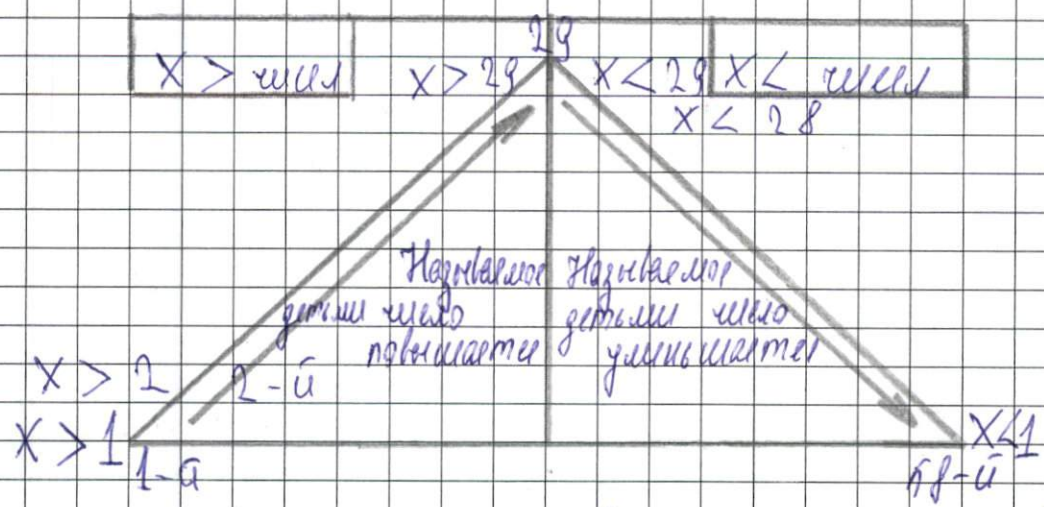 29
X > чисел
X > 29
X < 29
X < чисел
X < 28
Называемое
детьми число
повышается
Называемое
детьми число
уменьшается
X > 2
2-й
X > 1
1-й
X<1
58-й